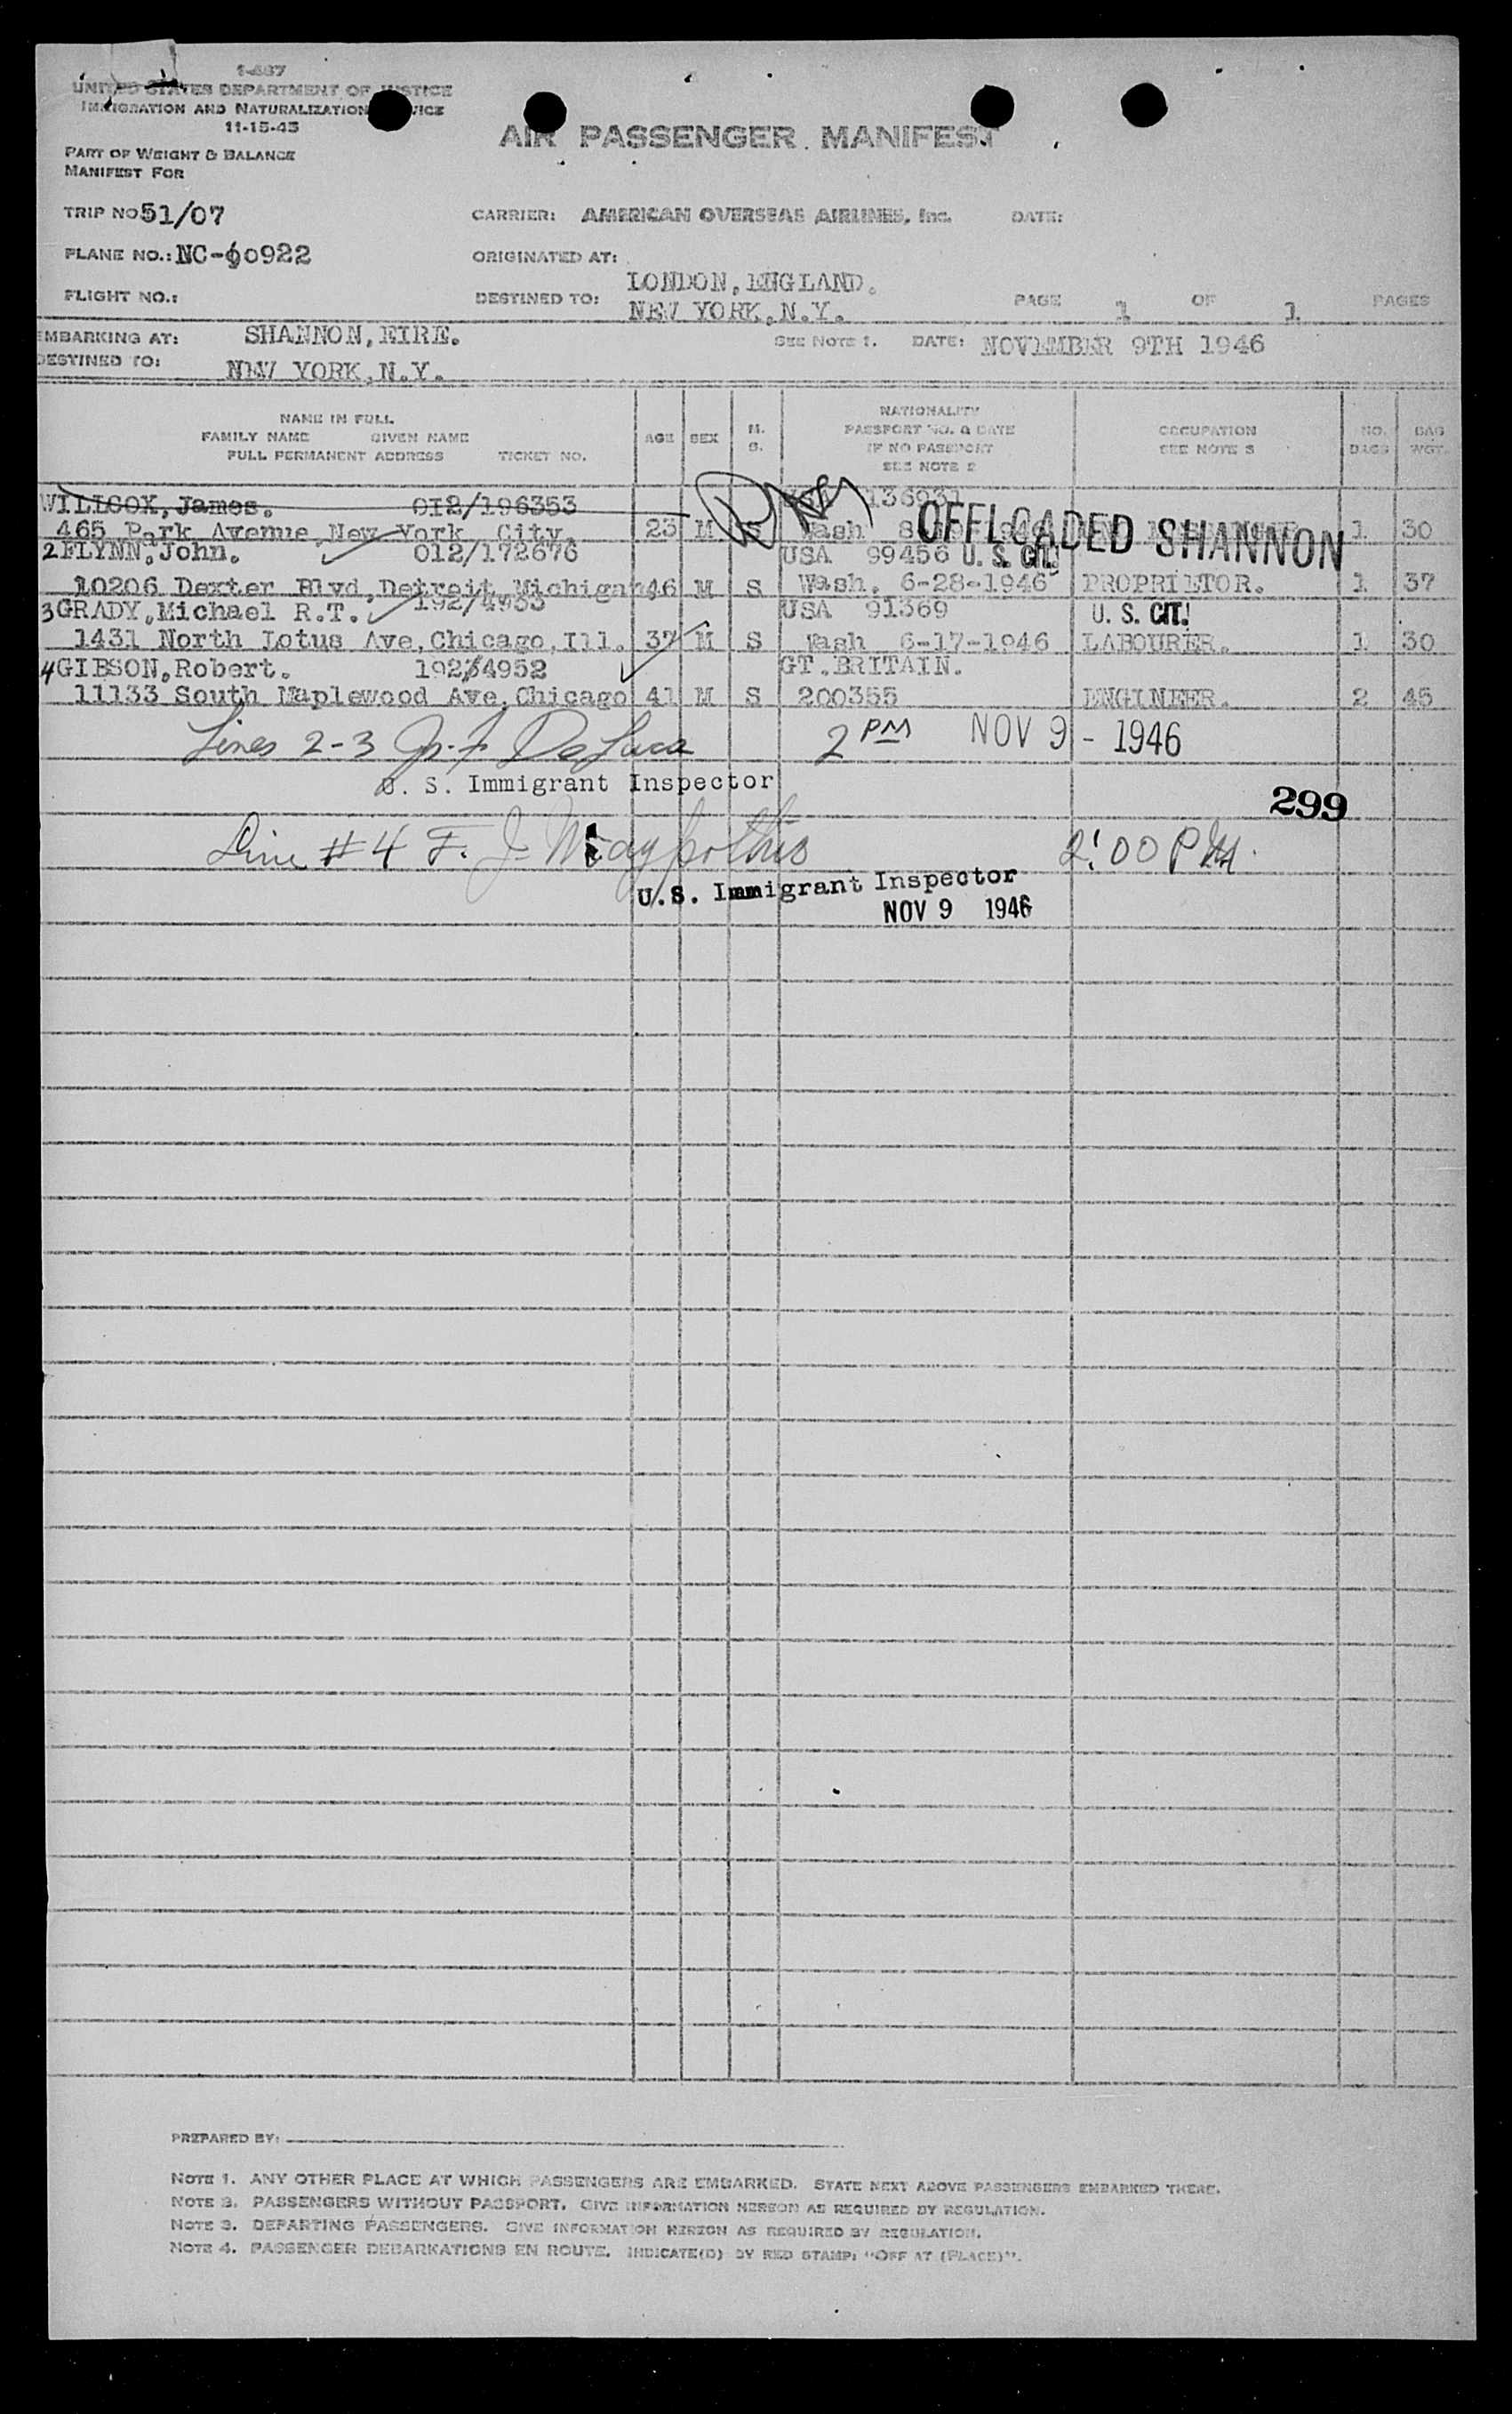 UNITED STATES DEPARTMENT OF JUSTICE
IMMIGRATION AND NATURALIZATION SERVICE
11-15-43
AIR PASSENGER MANIFEST
PART OF WEIGHT & BALANCE
MANIFEST FOR
TRIP NO 51/07 CARRIER: AMERICAN OVERSEAS AIRLINES, Inc. DATE:
PLANE NO.: NC-60922 ORIGINATED AT: LONDON, ENGLAND.
FLIGHT NO.: DESTINED TO: NEW YORK, N.Y. PAGE 1 OF 1 PAGES
EMBARKING AT: SHANNON, EIRE. SEE NOTE 1. DATE: NOVEMBER 9TH 1946
DESTINED TO: NEW YORK, N.Y.
NAME IN FULL
FAMILY NAME GIVEN NAME
FULL PERMANENT ADDRESS TICKET NO.
AGE SEX M. S.
NATIONALITY
PASSPORT NO. & DATE
IF NO PASSPORT
SEE NOTE 2
OCCUPATION
SEE NOTE 3
NO. BAGS
BAG WGT.
WILLCOX, James. 012/196353 136931
465 Park Avenue, New York City. 23 M S Wash 1 30
OFFLOADED SHANNON
2 FLYNN, John. 012/172676 USA 99456 U. S. CIT.
10206 Dexter Blvd, Detroit, Michigan. 46 M S Wash. 6-28-1946 PROPRIETOR. 1 37
3 GRADY, Michael R.T. 192/4953 USA 91369 U. S. CIT.
1431 North Lotus Ave, Chicago, Ill. 37 M S Wash 6-17-1946 LABOURER. 1 30
4 GIBSON, Robert. 192/4952 GT. BRITAIN.
11133 South Maplewood Ave, Chicago 41 M S 200355 ENGINEER. 2 45
Lines 2-3 DeLuca 2 PM NOV 9 - 1946
U. S. Immigrant Inspector
299
Line #4 F. J. 2:00 PM.
U.S. Immigrant Inspector
NOV 9 1946
PREPARED BY:
NOTE 1. ANY OTHER PLACE AT WHICH PASSENGERS ARE EMBARKED. STATE NEXT ABOVE PASSENGERS EMBARKED THERE.
NOTE 2. PASSENGERS WITHOUT PASSPORT. GIVE INFORMATION HEREON AS REQUIRED BY REGULATION.
NOTE 3. DEPARTING PASSENGERS. GIVE INFORMATION HEREON AS REQUIRED BY REGULATION.
NOTE 4. PASSENGER DEBARKATIONS EN ROUTE. INDICATE(D) BY RED STAMP: "OFF AT (PLACE)".